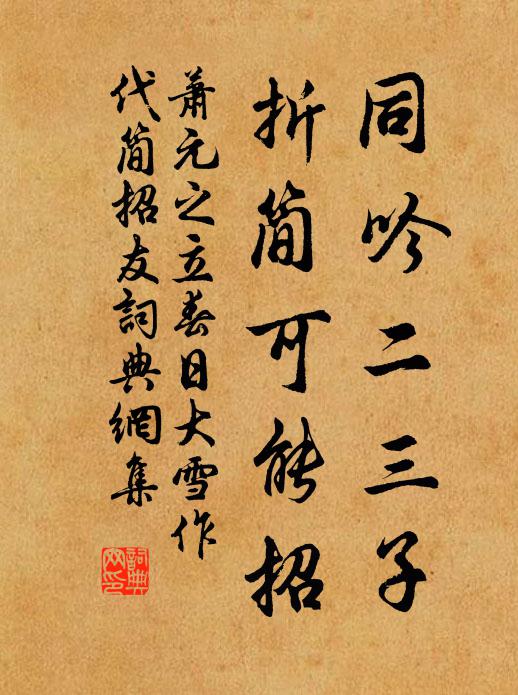 同吟二三子
折简可能招
萧元之立春日大雪作
代简招友詞典網集
詞典網印